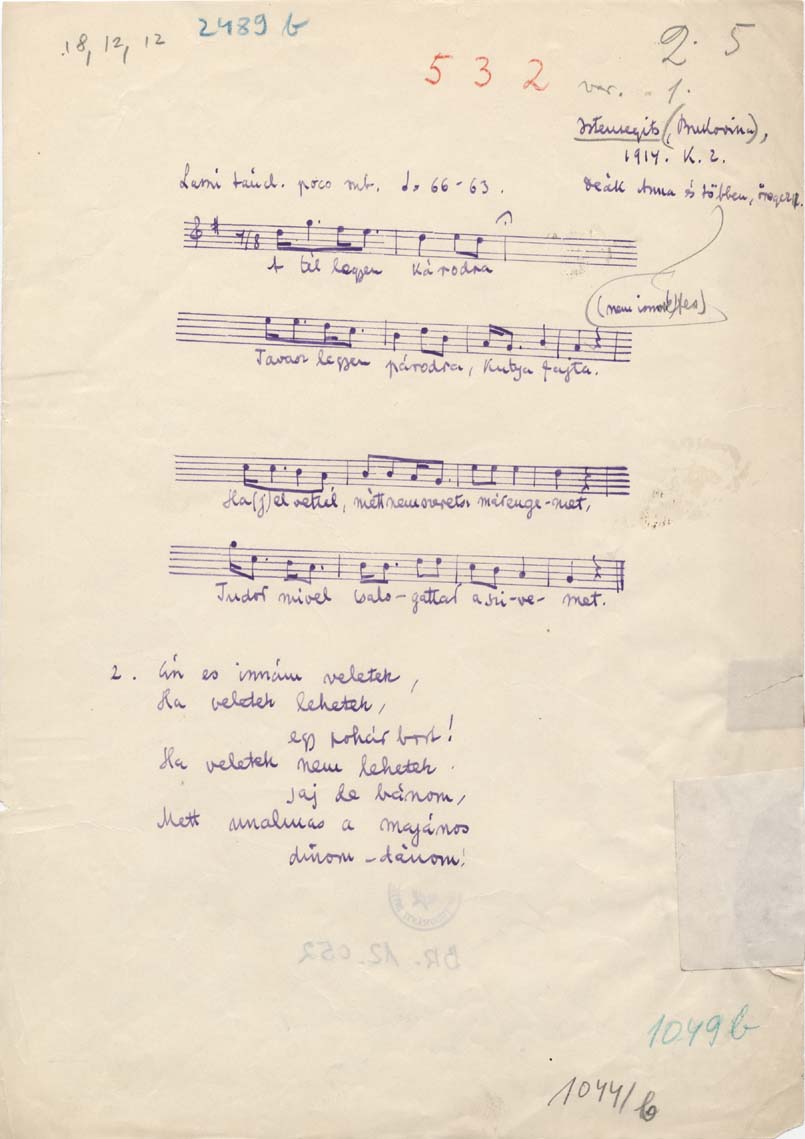 18, 12, 12
2489 b
2. 5
5 3 2
var. 1.
Istensegits (Bukovina),
1914. K. Z.
Lassú tánc. poco rub. = 66-63.
Deák Anna és többen, öregek
7/8
A tél legyen károdra
(nem ismeretes)
Tavasz legyen párodra, Kutya fajta.
Ha(j) el vettél, métt nem szeretsz máj enge-met,
Tudod mivel csalo-gattad a szi-ve- met.
2. Én es innám veletek,
Ha veletek lehetek,
egy pohár bort!
Ha veletek nem lehetek
Jaj de bánom,
Mett unalmas a majános
dínom-dánom!
BR. 12.052
1049 b
1044/b